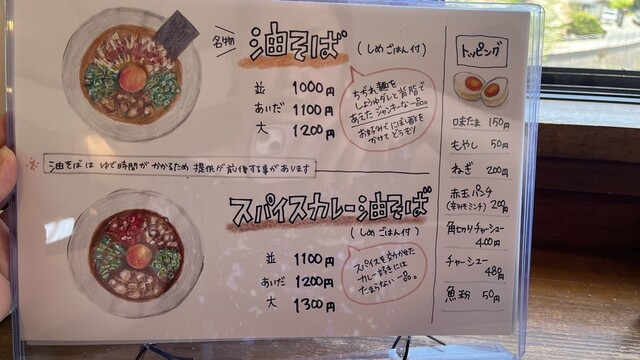 名物 油そば (しめごはん付)
並 1000円
あいだ 1100円
大 1200円
ちぢれ麺を
しょうゆダレと背脂で
あえたジャンキーな一品。
お好みでにぼし酢を
かけてどうぞ!
※油そばはゆで時間がかかるため提供が前後する事があります
スパイスカレー油そば
(しめごはん付)
並 1100円
あいだ 1200円
大 1300円
スパイスを効かせた
カレー好きには
たまらない一品。
トッピング
味たま 150円
もやし 50円
ねぎ 200円
赤玉パンチ
(辛みそミンチ) 200円
角切りチャーシュー
400円
チャーシュー
480円
魚粉 50円